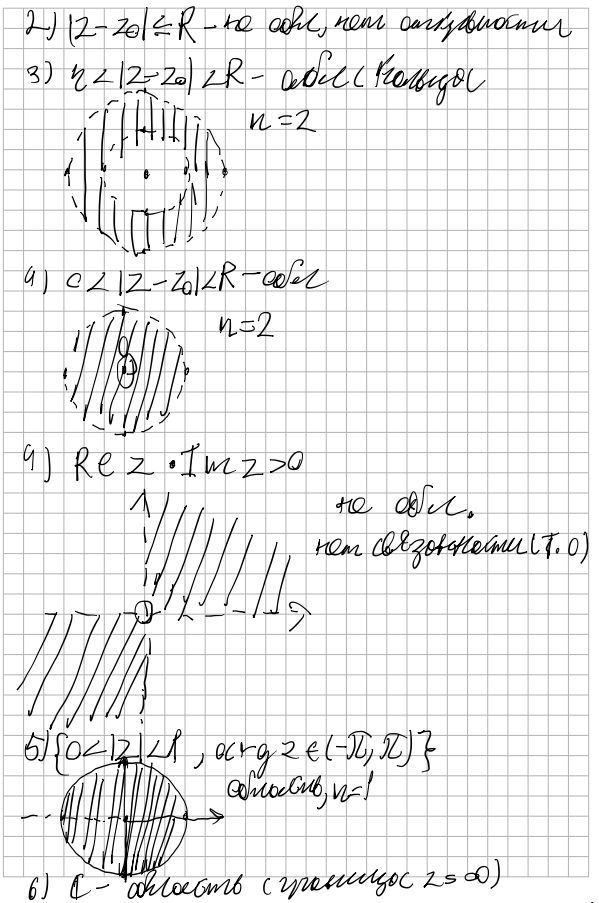 2) |z-z₀|≤R - не обл, нет открытости
3) r<|z-z₀|<R - обл (кольцо)
n=2
4) 0<|z-z₀|<R - обл
n=2
4) Re z · Im z>0
не обл.
нет связности (т. 0)
5) {0<|z|<1, arg z ∈ (-π, π)}
область, n=1
6) ℂ - область (граница z=∞)